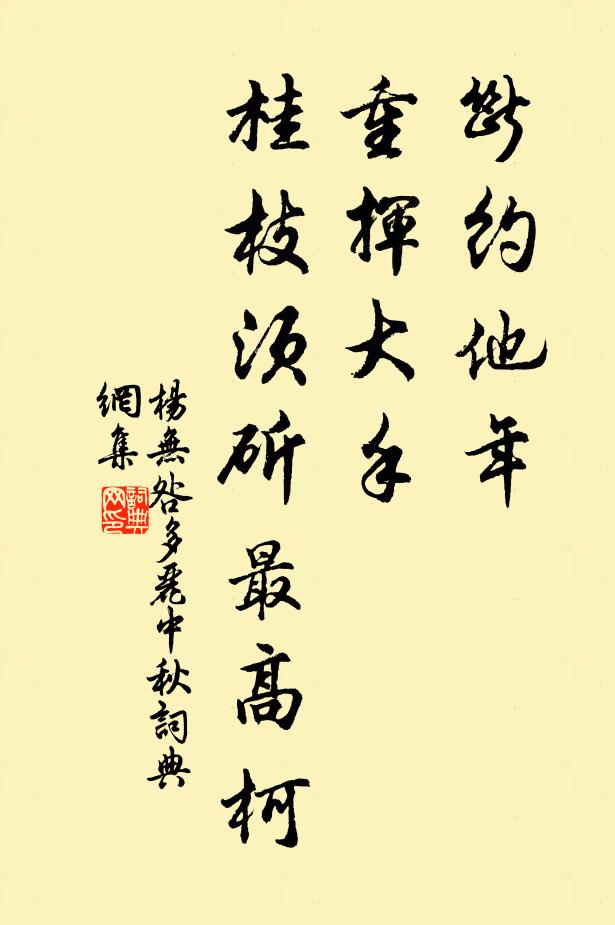 斷約他年
重揮大手
桂枝須斫最高柯
楊無咎多麗中秋詞典
網集
詞典
网印